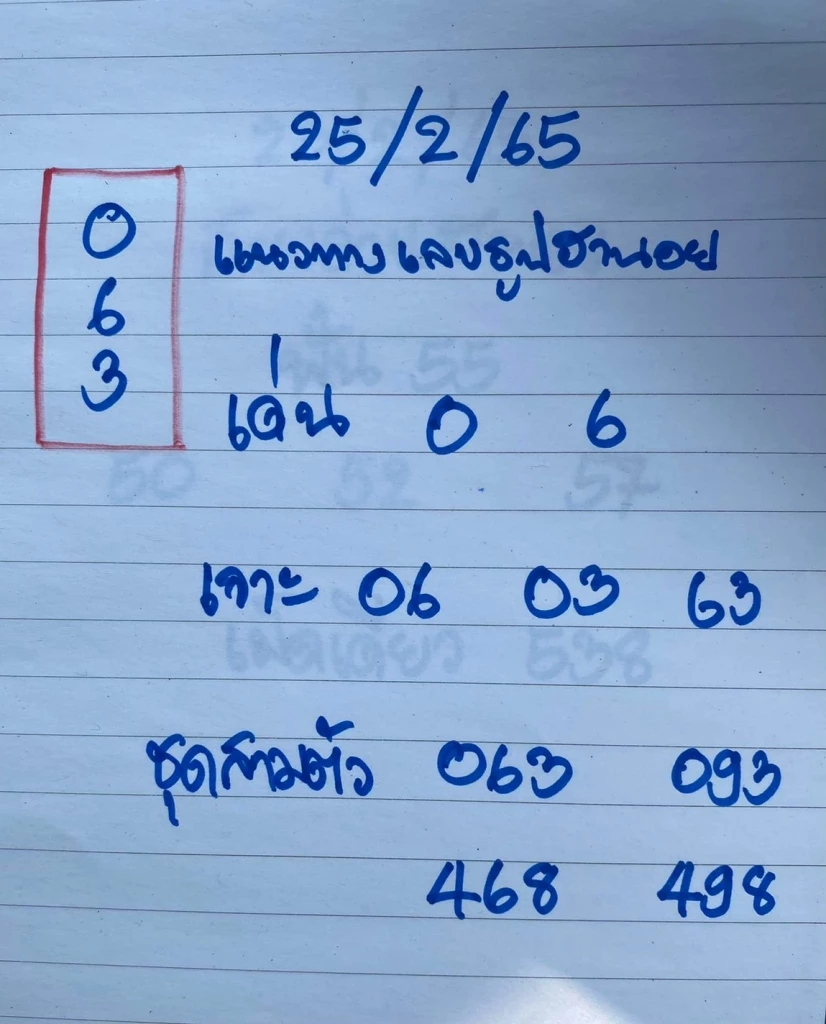 25/2/65
0
แนวทางเลขธูปฮานอย
6
3
เด่น 0 6
เจาะ 06 03 63
ชุดสามตัว 063 093
468 498